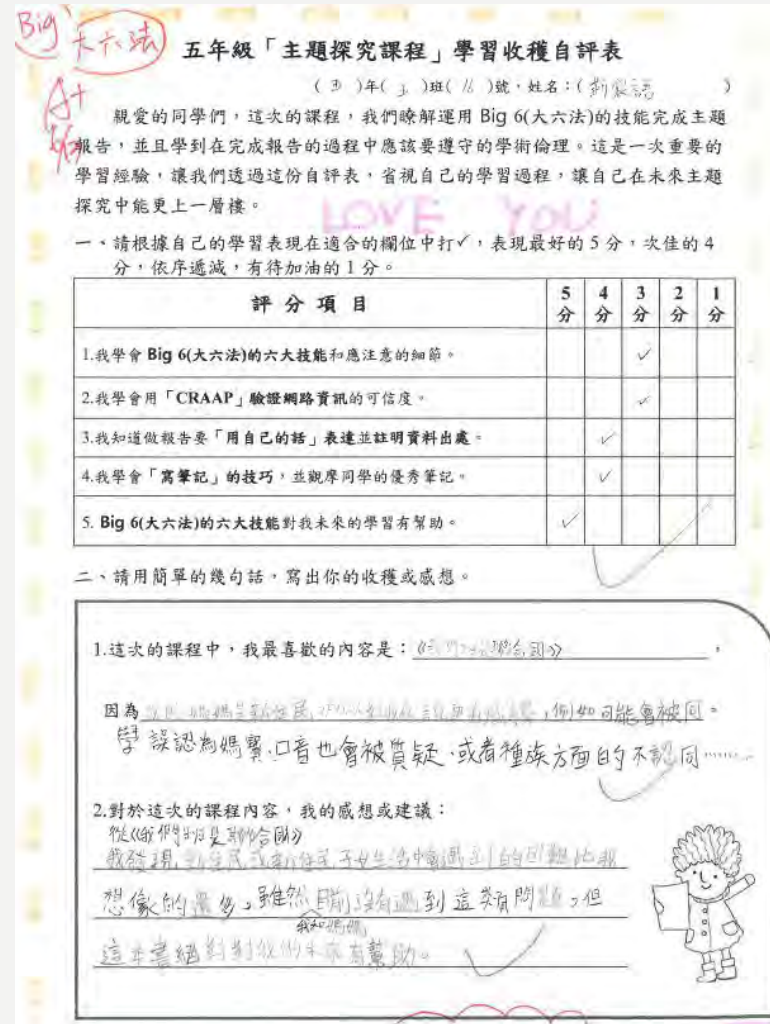 Big
大六法
A+
五年級「主題探究課程」學習收穫自評表
( 五 )年( )班( 16 )號,姓名:( )
親愛的同學們,這次的課程,我們瞭解運用 Big 6(大六法)的技能完成主題
報告,並且學到在完成報告的過程中應該要遵守的學術倫理。這是一次重要的
學習經驗,讓我們透過這份自評表,省視自己的學習過程,讓自己在未來主題
探究中能更上一層樓。
LOVE YOU
一、請根據自己的學習表現在適合的欄位中打✓,表現最好的 5 分,次佳的 4
分,依序遞減,有待加油的 1 分。
評 分 項 目 5分 4分 3分 2分 1分
1.我學會 Big 6(大六法)的六大技能和應注意的細節。 ✓
2.我學會用「CRAAP」驗證網路資訊的可信度。 ✓
3.我知道做報告要「用自己的話」表達並註明資料出處。 ✓
4.我學會「寫筆記」的技巧,並觀摩同學的優秀筆記。 ✓
5. Big 6(大六法)的六大技能對我未來的學習有幫助。 ✓
二、請用簡單的幾句話,寫出你的收穫或感想。
1.這次的課程中,我最喜歡的內容是:《我們 聯合國》,
因為 媽媽是新住民, ,例如可能會被同。
學誤認為媽寶、口音也會被質疑、或者種族方面的不認同……
2.對於這次的課程內容,我的感想或建議:
從《我們 聯合國》
我發現,新住民或新住民子女生活中會遇到的困難比我
想像的還多。雖然目前沒有遇到這類問題,但
我和媽媽
這本書絕對對我們未來有幫助。